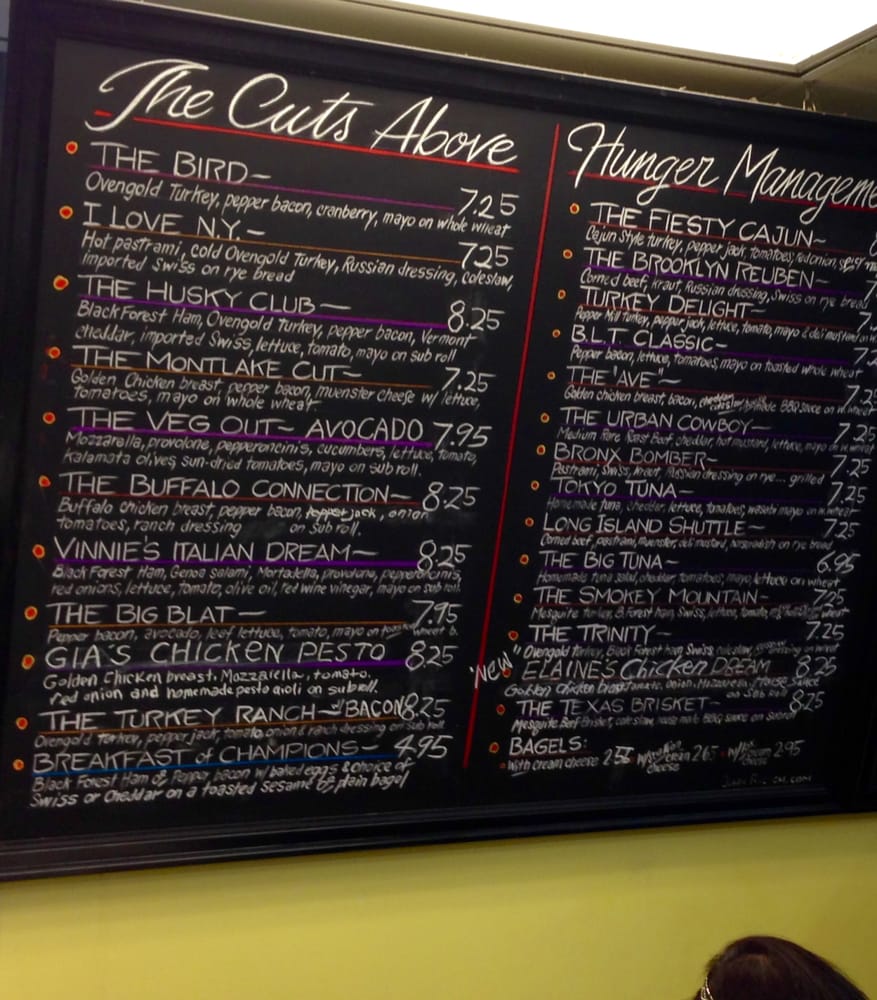 The Cuts Above
THE BIRD~
7.25
Ovengold Turkey, pepper bacon, cranberry, mayo on whole wheat
I LOVE N.Y.~
7.25
Hot pastrami, cold Ovengold Turkey, Russian dressing, coleslaw,
imported Swiss on rye bread
THE HUSKY CLUB~
8.25
Black Forest Ham, Ovengold Turkey, pepper bacon, Vermont
cheddar, imported Swiss, lettuce, tomato, mayo on sub roll
THE MONTLAKE CUT~
7.25
Golden Chicken breast, pepper bacon, muenster cheese w/ lettuce,
tomatoes, mayo on whole wheat
THE VEG OUT~ AVOCADO 7.95
Mozzarella, provolone, pepperoncinis, cucumbers, lettuce, tomato,
kalamata olives, sun-dried tomatoes, mayo on sub roll.
THE BUFFALO CONNECTION~ 8.25
Buffalo chicken breast, pepper bacon, pepper jack, onion
tomatoes, ranch dressing on sub roll.
VINNIE'S ITALIAN DREAM~ 8.25
Black Forest Ham, Genoa salami, Mortadella, provolone, pepperoncinis,
red onions, lettuce, tomato, olive oil, red wine vinegar, mayo on sub roll.
THE BIG BLAT~ 7.95
Pepper bacon, avocado, leaf lettuce, tomato, mayo on toasted wheat b.
GIA'S CHICKEN PESTO 8.25
Golden Chicken breast, Mozzarella, tomato,
red onion and homemade pesto aioli on sub roll.
THE TURKEY RANCH~ w/ BACON 8.25
Ovengold Turkey, pepper jack, tomato, onion & ranch dressing on sub roll
BREAKFAST of CHAMPIONS~ 4.95
Black Forest Ham or Pepper bacon w/ baked eggs & choice of
Swiss or Cheddar on a toasted sesame or plain bagel
Hunger Manageme
THE FIESTY CAJUN~
Cajun Style turkey, pepper jack, tomatoes, red onion,
THE BROOKLYN REUBEN~ 7.
Corned beef, kraut, Russian dressing, Swiss on rye bread
TURKEY DELIGHT~ 7.
Pepper Mill turkey, pepper jack, lettuce, tomato, mayo & deli mustard on w
B.L.T. CLASSIC~ 7.2
Pepper bacon, lettuce, tomatoes, mayo on toasted whole wheat
THE "AVE"~ 7.25
Golden chicken breast, bacon, BBQ sauce on wheat
THE URBAN COWBOY~ 7.25
Medium Rare Roast Beef, cheddar, hot mustard, lettuce, mayo on wheat
BRONX BOMBER~ 7.25
Pastrami, Swiss, kraut, Russian dressing on rye... grilled
TOKYO TUNA~ 7.25
Homemade tuna, cheddar, lettuce, tomatoes, wasabi mayo on wheat
LONG ISLAND SHUTTLE~ 7.25
Corned beef, pastrami, muenster, deli mustard, horseradish on rye bread
THE BIG TUNA~ 6.95
Homemade tuna salad, cheddar, tomatoes, mayo, lettuce on wheat
THE SMOKEY MOUNTAIN~ 7.25
Mesquite turkey, B.Forest ham, Swiss, lettuce, tomato, wheat
THE TRINITY~ 7.25
Ovengold turkey, Black Forest Ham, Swiss, coleslaw, dressing on wheat
"New" ELAINE'S Chicken DREAM 8.25
Golden Chicken breast, tomato, onion, Mozzarella, House Sauce
on sub roll
THE TEXAS BRISKET~ 8.25
Mesquite Beef Brisket, coleslaw, house made BBQ sauce on sub roll
BAGELS:
With cream cheese 2.55 cream cheese 2.65 cheese 2.95